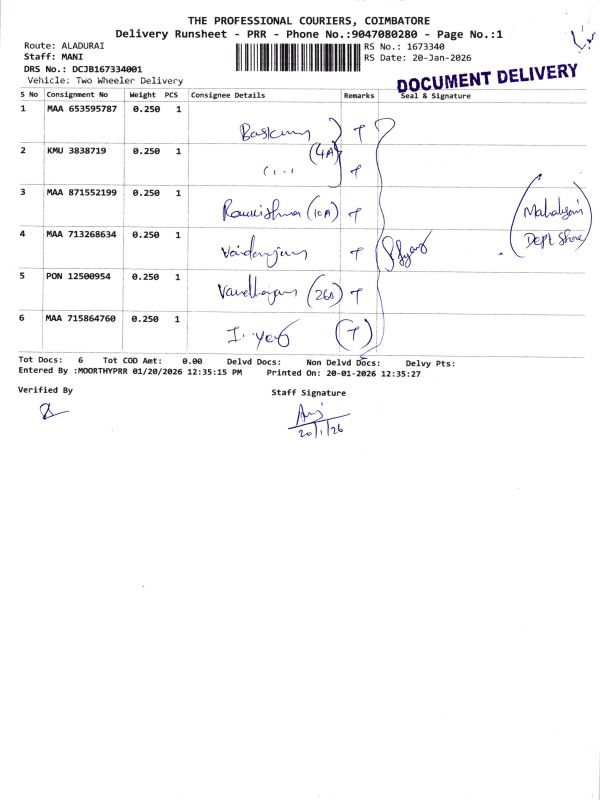 THE PROFESSIONAL COURIERS, COIMBATORE
Delivery Runsheet - PRR - Phone No.:9047080280 - Page No.:1
Route: ALADURAI
RS No.: 1673340
Staff: MANI
RS Date: 20-Jan-2026
DRS No.: DCJB167334001
Vehicle: Two Wheeler Delivery
DOCUMENT DELIVERY
S No Consignment No Weight PCS Consignee Details Remarks Seal & Signature
1 MAA 653595787 0.250 1
2 KMU 3838719 0.250 1 (4A)
3 MAA 871552199 0.250 1 (10A)
4 MAA 713268634 0.250 1
5 PON 12500954 0.250 1
6 MAA 715864760 0.250 1 (T)
Dept Store
Tot Docs: 6 Tot COD Amt: 0.00 Delvd Docs: Non Delvd Docs: Delvy Pts:
Entered By :MOORTHYPRR 01/20/2026 12:35:15 PM Printed On: 20-01-2026 12:35:27
Verified By
Staff Signature
20/1/26